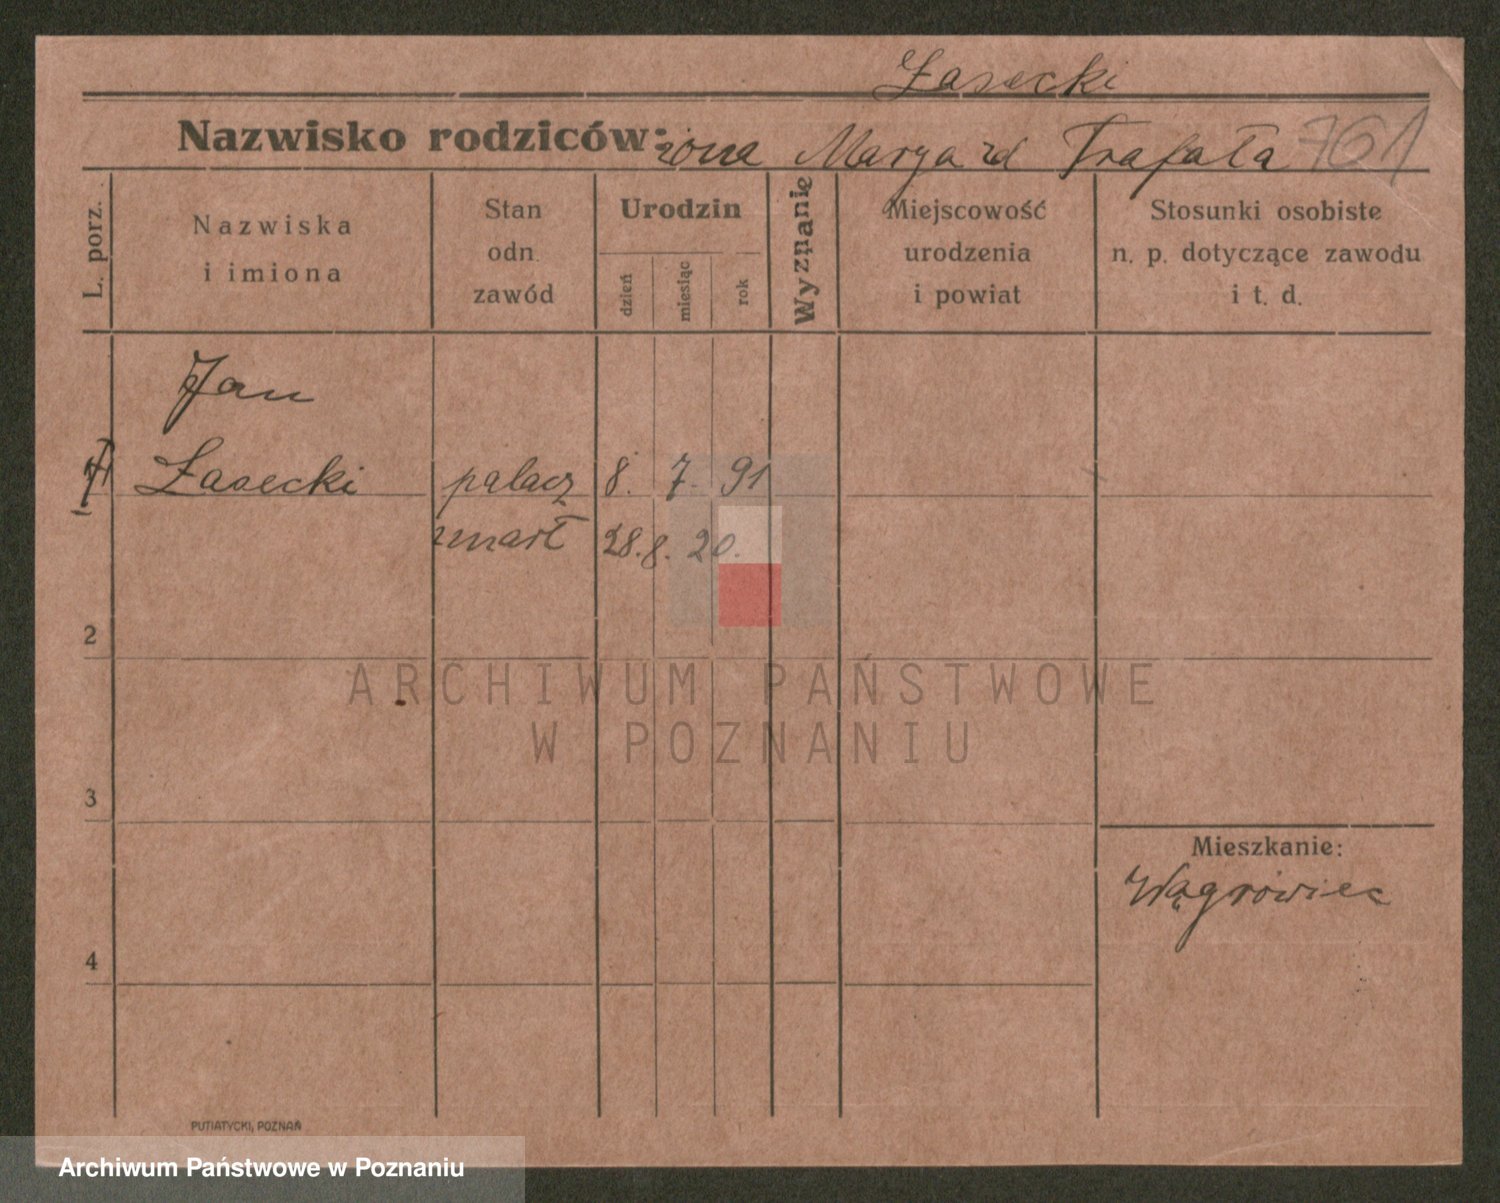 Łasecki
Nazwisko rodziców: żona Trafała 761
L. porz.
Nazwiska
i imiona
Stan
odn.
zawód
Urodzin
dzień
miesiąc
rok
Wyznanie
Miejscowość
urodzenia
i powiat
Stosunki osobiste
n. p. dotyczące zawodu
i t. d.
Jan
Łasecki palacz 8. 7. 91
zmarł 28. 8. 20.
2
ARCHIWUM PAŃSTWOWE
W POZNANIU
3
Mieszkanie:
Wągrówiec
4
PUTIATYCKI, POZNAŃ
Archiwum Państwowe w Poznaniu